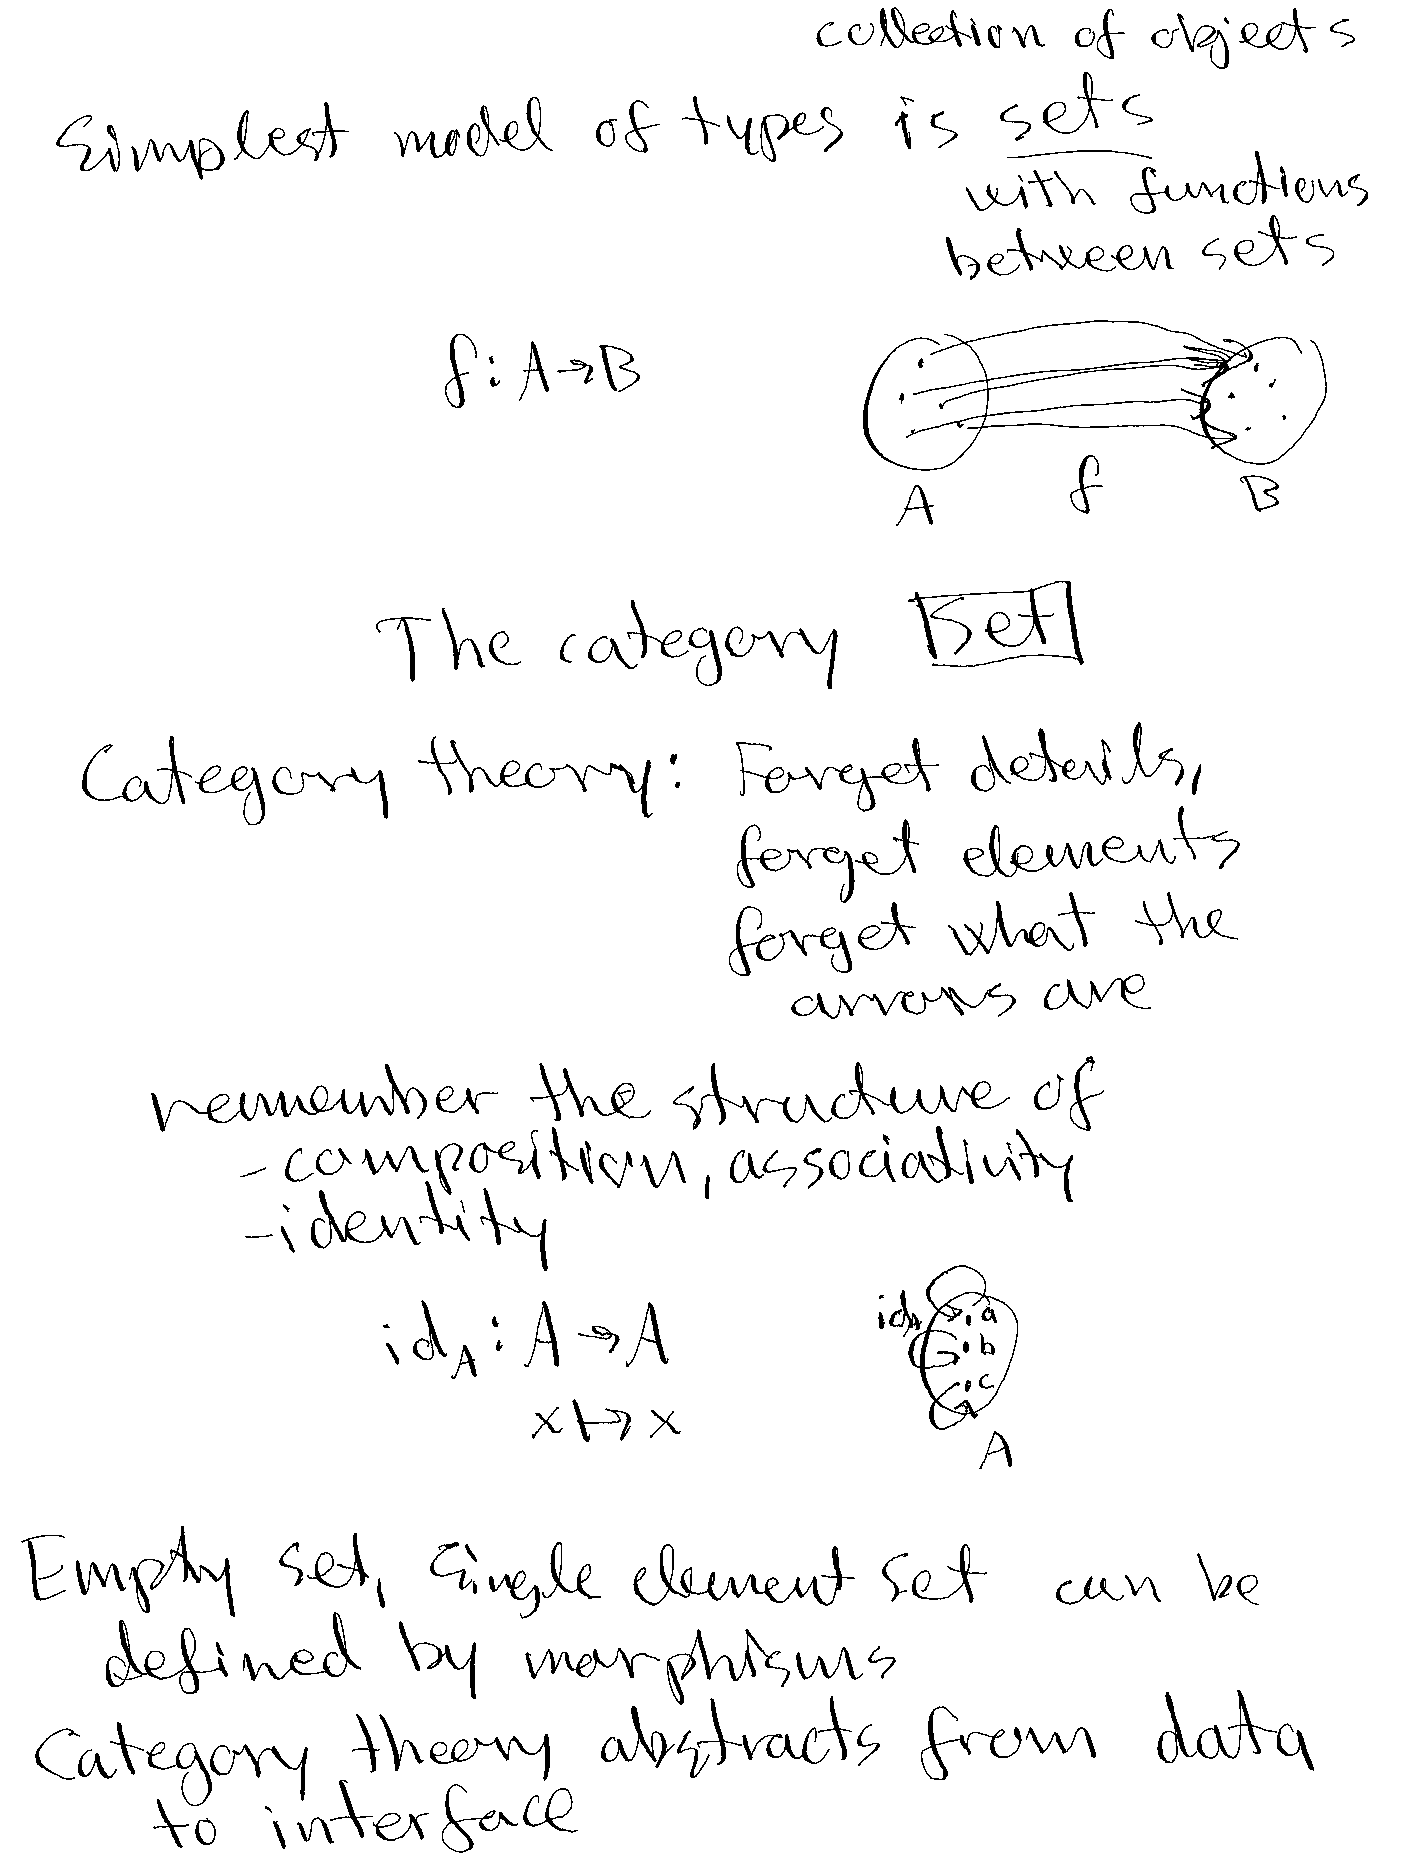 collection of objects
Simplest model of types is sets
with functions
between sets
f: A→B
A f B
The category Set
Category theory: Forget details,
forget elements
forget what the
arrows are
remember the structure of
- composition, associativity
- identity
id_A : A → A
x ↦ x
id_A
a
b
c
A
Empty set, single element set can be
defined by morphisms
Category theory abstracts from data
to interface